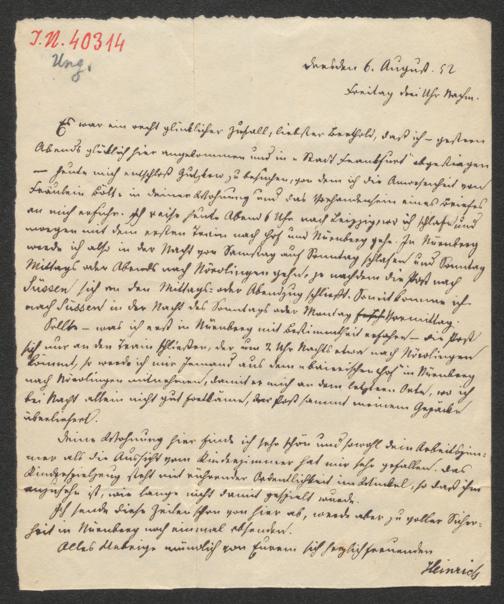 I.N. 40314
Ung.
Dresden 6. August. 52
Freitag drei Uhr Nachm.
Es war ein recht glücklicher Zufall, liebster Berthold, daß ich – gestern
Abends glücklich hier angekommen und in „Stadt Frankfurt" abgestiegen
– heute mich entschloß Gutzkow zu besuchen, von dem ich die Anwesenheit von
Fräulein in deiner Wohnung und das Vorhandensein eines Briefes
an mich erfuhr. Ich reise heute Abend 6 Uhr nach Leipzig, wo ich schlafe und
morgen mit dem ersten Train nach Hof und Nürnberg gehe. In Nürnberg
werde ich also in der Nacht von Samstag auf Sonntag schlafen und Sonntag
Mittags oder Abends nach Nördlingen gehn, je nachdem die Post nach
Füssen sich an den Mittags- oder Abendzug schließt. Somit komme ich
nach Füssen in der Nacht des Sonntags oder Montag Vormittag.
Sollte – was ich erst in Nürnberg mit Bestimmtheit erfahre – die Post
sich nur an den Train schließen, der um 2 Uhr Nachts etwa nach Nördlingen
kommt, so werde ich mir Jemand aus dem „bairischen Hof" in Nürnberg
nach Nördlingen mitnehmen, damit er mich an dem letztern Orte, wo ich
bei Nacht allein nicht gut fortkäme, der Post sammt meinem Gepäcke
überliefert.
Deine Wohnung hier finde ich sehr schön und sowohl dein Arbeitszim-
mer als die Aussicht vom Kinderzimmer hat mir sehr gefallen. Das
Kinderspielzeug steht mit rührender Ordentlichkeit im Winkel, so daß ihm
anzusehen ist, wie lange nicht damit gespielt wurde.
Ich sende diese Zeilen schon von hier ab, werde aber zu voller Sicher-
heit in Nürnberg noch einmal absenden.
Alles Uebrige mündlich von Eurem sich herzlich freuenden
Heinrich